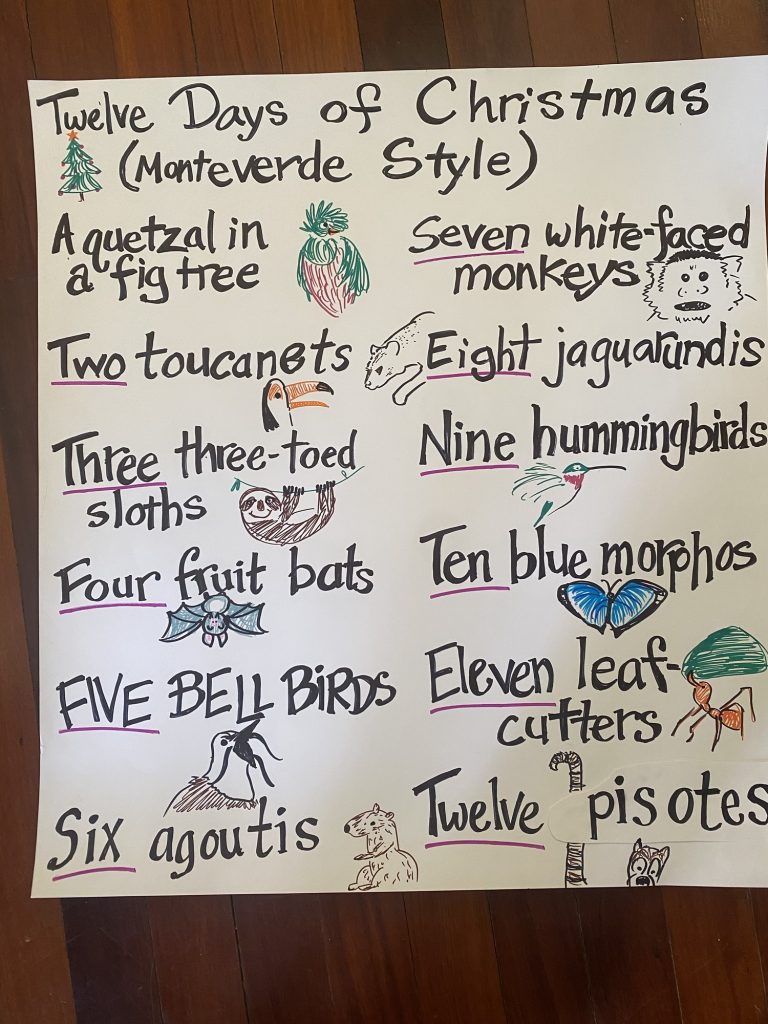 Twelve Days of Christmas
(Monteverde Style)
A quetzal in
a fig tree
Two toucanets
Three three-toed
sloths
Four fruit bats
FIVE BELL BiRDS
Six agoutis
Seven white-faced
monkeys
Eight jaguarundis
Nine hummingbirds
Ten blue morphos
Eleven leaf-
cutters
Twelve pisotes